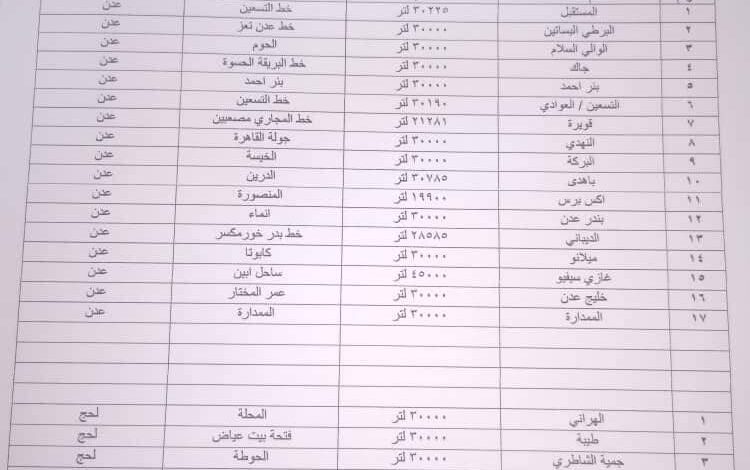 ١ المستقبل ٣٠٢٢٥ لتر خط التسعين عدن
٢ البرطي البساتين ٣٠٠٠٠ لتر خط عدن تعز عدن
٣ الوالي السلام ٣٠٠٠٠ لتر الحوم عدن
٤ جاك ٣٠٠٠٠ لتر خط البريقة الحسوة عدن
٥ بئر احمد ٣٠٠٠٠ لتر بئر احمد عدن
٦ التسعين / العوادي ٣٠١٩٠ لتر خط التسعين عدن
٧ قويرة ٢١٢٨١ لتر خط المجاري مصعبين عدن
٨ النهدي ٣٠٠٠٠ لتر جولة القاهرة عدن
٩ البركة ٣٠٠٠٠ لتر الخيسة عدن
١٠ باهدى ٣٠٧٨٥ لتر الدرين عدن
١١ اكس برس ١٩٩٠٠ لتر المنصورة عدن
١٢ بندر عدن ٣٠٠٠٠ لتر انماء عدن
١٣ الديباني ٢٨٥٨٥ لتر خط بدر خورمكسر عدن
١٤ ميلانو ٣٠٠٠٠ لتر كابوتا عدن
١٥ غازي سيفيو ٤٥٠٠٠ لتر ساحل ابين عدن
١٦ خليج عدن ٣٠٠٠٠ لتر عمر المختار عدن
١٧ الممدارة ٣٠٠٠٠ لتر الممدارة عدن
١ الهراني ٣٠٠٠٠ لتر المحلة لحج
٢ طيبة ٣٠٠٠٠ لتر فتحة بيت عياض لحج
٣ جمية الشاطري ٣٠٠٠٠ لتر الحوطة لحج